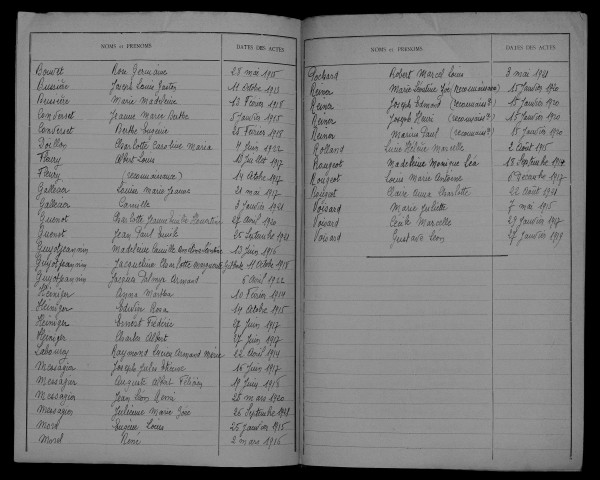 NOMS et PRENOMS DATES DES ACTES
Bouvet Rose Germaine 28 mai 1915
Bussière Joseph Louis Gaston 11 Octobre 1913
Bussière Marie Madeleine 13 Février 1918
Converset Jeanne Marie Berthe 5 Janvier 1915
Converset Berthe Eugénie 25 Février 1918
Doillon Charlotte Caroline Maria 4 Juin 1922
Fleury Albert Louis 10 Juillet 1917
Fleury (reconnaissance) 14 Octobre 1917
Gallecier Louise Marie Jeanne 21 mai 1917
Gallecier Camille 3 Janvier 1921
Guenot Charlotte Jeanne 27 Avril 1920
Guenot Jean Paul Emile 25 Septembre 1921
Guyotjeannin Madeleine Camille 13 Juin 1915
Guyotjeannin Jacqueline Charlotte Marguerite 11 Octobre 1915
Guyotjeannin Jacques Palmyr Armand 6 Avril 1922
Heiniger Anna Martha 10 Février 1914
Heiniger Edwige Rosa 14 Octobre 1915
Heiniger Ernest Frédéric 27 Juin 1917
Heiniger Charles Albert 27 Juin 1917
Labourey Raymond Lucien Armand Marie 22 Avril 1919
Messagier Joseph Jules Etienne 16 Juin 1917
Messagier Auguste Albert 19 Juin 1915
Messagier Jean Léon René 25 mars 1920
Messagier Julienne Marie 26 Septembre 1921
Morel Eugène Louis 25 Janvier 1915
Morel René 2 mars 1916
NOMS et PRENOMS DATES DES ACTES
Pochard Robert Marcel Louis 3 mai 1921
Reiner Marie (reconnaissance) 15 Janvier 1920
Reiner Joseph Edmond (reconnaisce) 15 Janvier 1920
Reiner Joseph Henri (reconnaisce) 15 Janvier 1920
Reiner Marius Paul (reconnaisce) 15 Janvier 1920
Rolland Lucie Hélène Marcelle 2 Août 1915
Rougeot Madeleine Monique Léa 18 Septembre
Rougeot Louis Marie Antoine 6 Décembre 1917
Rougeot Claire Anna Charlotte 22 Août 1921
Voisard Marie Juliette 7 mai 1915
Voisard Cécile Marcelle 29 Janvier 1917
Voisard Gustave Léon 27 Janvier 1919